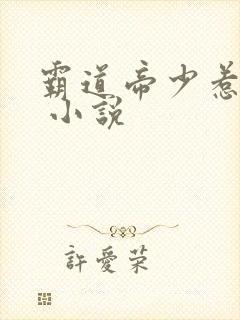 霸道帝少惹
小說
許愛荣